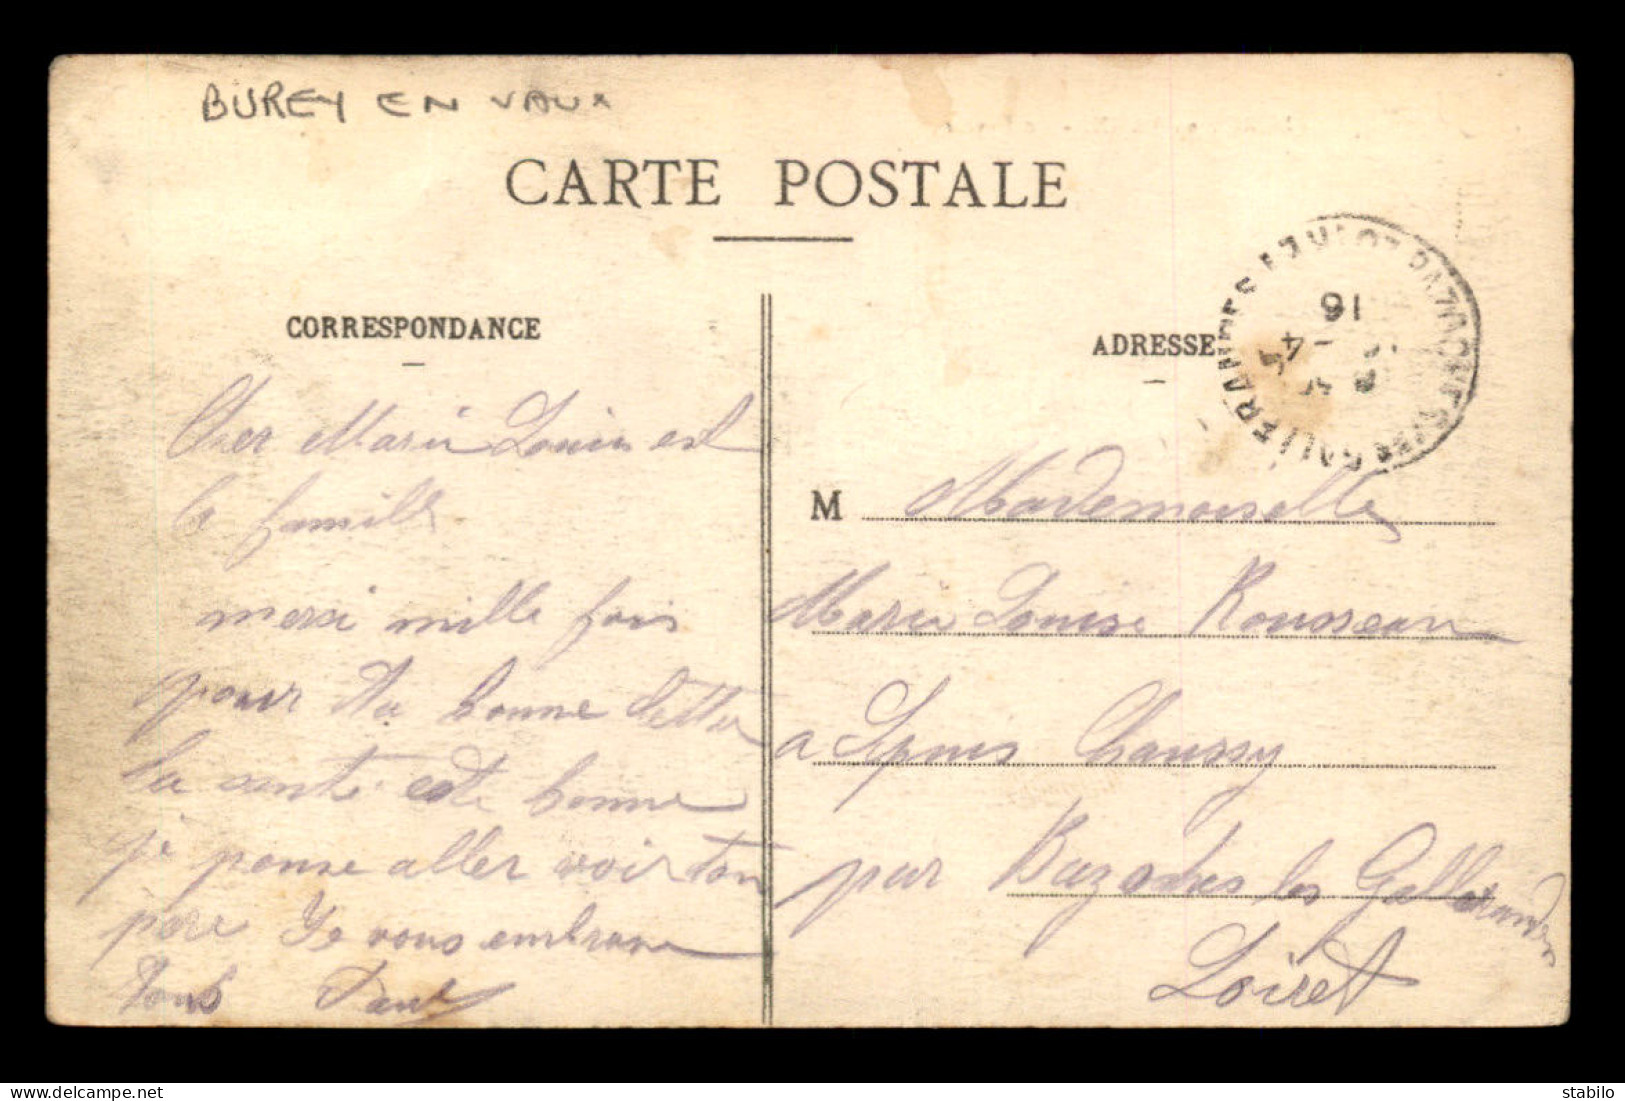 BUREY EN VAUX
CARTE POSTALE
CORRESPONDANCE
Cher Marie Louise est
la famille
merci mille fois
pour ta bonne lettre
la sante este bonne
je pense aller voir ton
père Je vous embrasse
tous Paul
16
4
ADRESSE
M Mademoiselle
Marie Louise Rousseau
a Chaussy
par Bazoches les Gallerandes
Loiret
stabilo